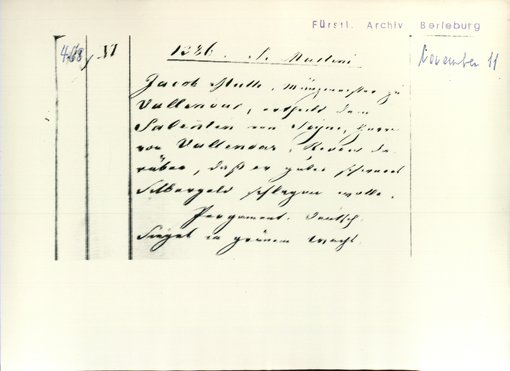 Fürstl. Archiv Berleburg
468 VI 1386. S. Martini November 11
Jacob, Münzmeister zu
Vallendar, ertheilt dem
Salentin von Sayn, Herrn
von Vallendar, Revers da-
rüber, daß er gutes
Silbergeld schlagen wolle.
Pergament. Deutsch.
Siegel in grünem Wachs.